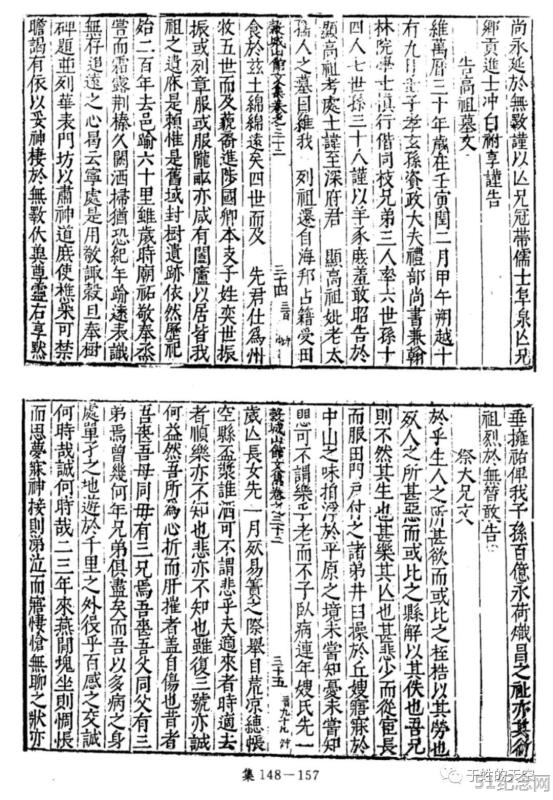 尚永延於無斁謹以亾兄冠帶儒士阜泉亾兄
鄉貢進士冲白祔享謹告
告高祖墓文
維萬曆三十年歲在壬寅閏二月甲午朔越十
有九日壬子孝玄孫資政大夫禮部尚書兼翰
林院學士慎行偕同枝兄弟三人率六世孫十
四人七世孫三十八人謹以羊豕庶羞敢昭告於
顯高祖考處士諱至深府君 顯高祖妣老太
孺人之墓曰維我 列祖還自海邦占籍受田
穀城山館文集卷之三十二 三十四
食於兹土綿綿遠矣四世而及 先君仕爲州
牧五世而及藐進陟國卿本支子姓奕世振
振或列章服或服隴畝亦咸有閭廬以居皆我
祖之遺庥是賴惟是舊域封樹遺跡依然歷祀
始二百年去邑踰六十里雖歲時廟祐敬奉烝
嘗而霜露荆榛久闕洒掃猶恐紀年踰遠表識
無存追遠之心曷云寧處是用敬諏穀旦奉樹
碑題並列華表門坊以肅神道庶使樵牧可禁
瞻謁有依以妥神棲於無斁伏兾尊靈右享默
垂擁祐俾我子孫百億永荷熾昌之祉亦其衍
祖烈於無替敢告
祭大兄文
於乎生人之所甚欲而或比之桎梏以其勞也
死人之所甚惡而或比之縣解以其佚也吾兄
則不然其生也甚樂其亾也甚悲少而從宦長
而服田門戶付之諸弟井臼操於丘嫂寤寐於
中山之味拍浮於平原之境未嘗知憂未嘗知
思可不謂樂乎老而不子臥病連年嫂氏先一
穀城山館文集卷之三十二 三十五
歲亾長女先一月死易簀之際舉目荒凉繐帳
空縣盃漿誰洒可不謂悲乎夫適來者時適去
者順樂亦不知也悲亦不知也雖復三號亦誠
何益然吾所爲心折而肝摧者蓋自傷也昔者
吾喪吾母同母有三兄焉吾喪吾父同父有三
弟焉曾幾何年兄弟俱盡矣而吾以多病之身
處單孑之地遊於千里之外役乎百感之交誠
何時哉誠何時哉二三年來燕閒塊坐則惆悵
而思夢寐神接則涕泣而寤悽愴無聊之狀亦
集 148－157
于姓的天空
51纪念网